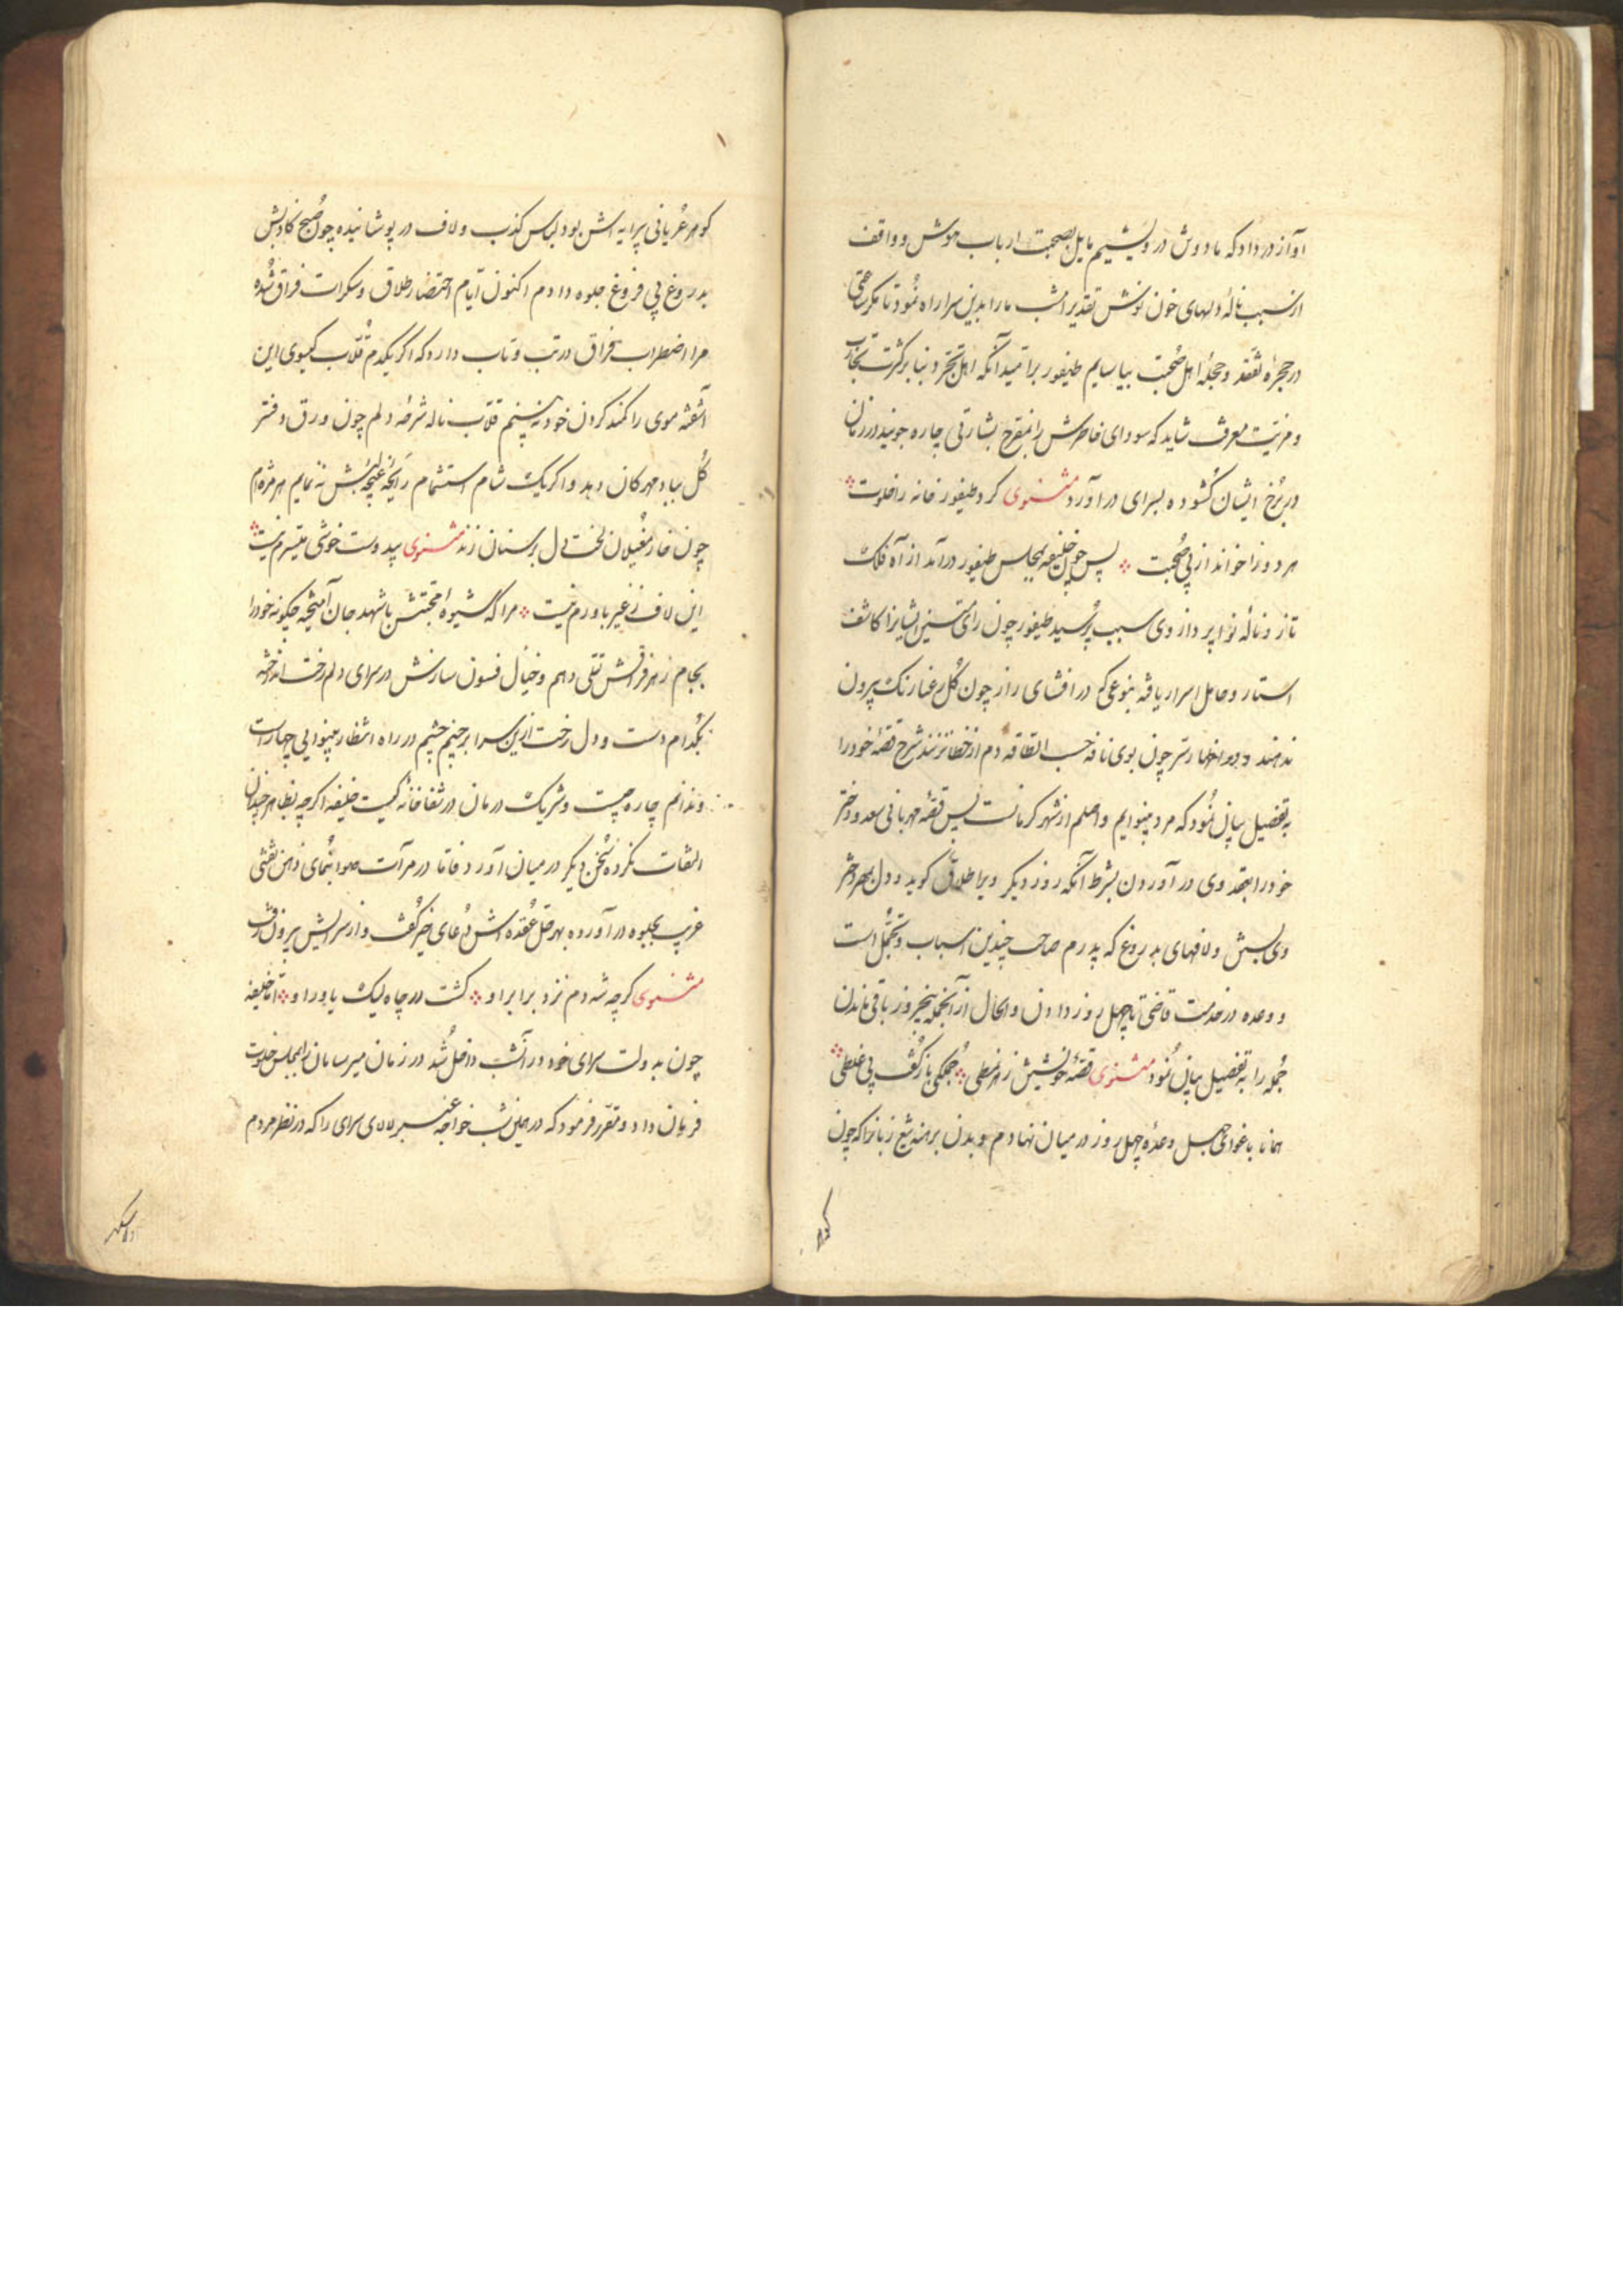 آواز در داد که ما دوش درویشیم مایل بصحبت ارباب هوش و واقف
از سبب نالهٔ دلهای خون نوش تقدیر امشب ما را بدین سرا راه نمود تا مگر ساعتی
در حجرهٔ تفقد و حجلهٔ اهل صحبت بیاساییم طیفور بر امید آنکه اهل تجرد بنا بر کثرت تجارب
و مزیت معرفت شاید که سودای خاطرش را بمفرح بشارتی چاره جویند در زمان
در برخ ایشان کشوده بسرای در آورد مثنوی کرد طیفور خانه را خلوت
هر دو را خواند از پی صحبت پس چون خلیفه بمجلس طیفور درآمد از آه فلک
تاز و نالهٔ نواپرداز وی سبب پرسید طیفور چون رای متین ایشانرا کاشف
استار و حامل اسرار یافت بنوعی که در افشای راز چون کل رعنا رنک بیرون
ندهند و در اظهار سر چون بوی نافه حسب الطاقه دم از خطا نزنند شرح قصهٔ خود را
به تفضیل بیان نمود که مرد بینوایم و اصلم از شهر کرمانست پس قصهٔ مهربانی سعد و دختر
خود را بعقد وی در آوردن بشرط آنکه روز دیکر ویرا طلاق کوید و دل بمهر دختر
وی بستن و لافهای بدروغ که پدرم صاحب چندین اسباب و تجمل است
و وعده در خدمت قاضی تا چهل روز دادن و الحال از آنجمله پنج روز باقی ماندن
جمله را به تفضیل بیان نمود مثنوی قصهٔ خویشتن ز هر نمطی جملکی باز کفت بی غلطی
همانا باغوای جهل وعدهٔ چهل روز در میان نهادم و بدن برهنه تیغ زبانرا که چون
کوهر
کوهر عریانی پیرایه اش بود لباس کذب و لاف در پوشانیده چون صبح کاذبش
بدروغ بی فروغ جلوه دادم اکنون ایام احتضار طلاق و سکرات فراق شده
مرا اضطراب فراق در تب و تاب دارد که اکر یکدم قلاب کیسوی این
آشفته موی را کمند کردن خود نه بینم قلاب ناله شرحهٔ دلم چون ورق دفتر
کل بباد مهرکان دهد و اکر یک شام استشمام رایحهٔ غنچهٔ لبش نه نمایم هر مژه ام
چون خار مغیلان لخت دل بر سنان زند مثنوی بیدوست خوشی میسرم نیست
این لاف ز غیر باورم نیست مرا که شیوهٔ محبتش با شهد جان آمیخته چکونه خود را
بجام زهر فراقش تسلی دهم و خیال فسون سازش در سرای دلم رخت انداخته
بکدام دست و دل رخت ازین سرا برچینم چشم در راه انتظار بینوایی چهار است
و ندانم چاره چیست و شریک درمان در شفاخانهٔ کیست خلیفه اکرچه بظاهر چندان
التفات نکرده سخن دیکر در میان آورد فاما در مرآت صواب نمای ذهن نقشی
غریب بجلوه در آورده بهر حل عقده اش دعای خیر کفت و از سرایش بیرون رفت
مثنوی کرچه شه دم نزد برابر او کشت در چاه لیک یاور او اما خلیفه
چون بدولت سرای خود در آنشب داخل شد در زمان میر سامان را بمجلس خلوت
فرمان داد و مقرر فرمود که در همین شب خواجه عنبر لالای سرای را که در نظر مردم